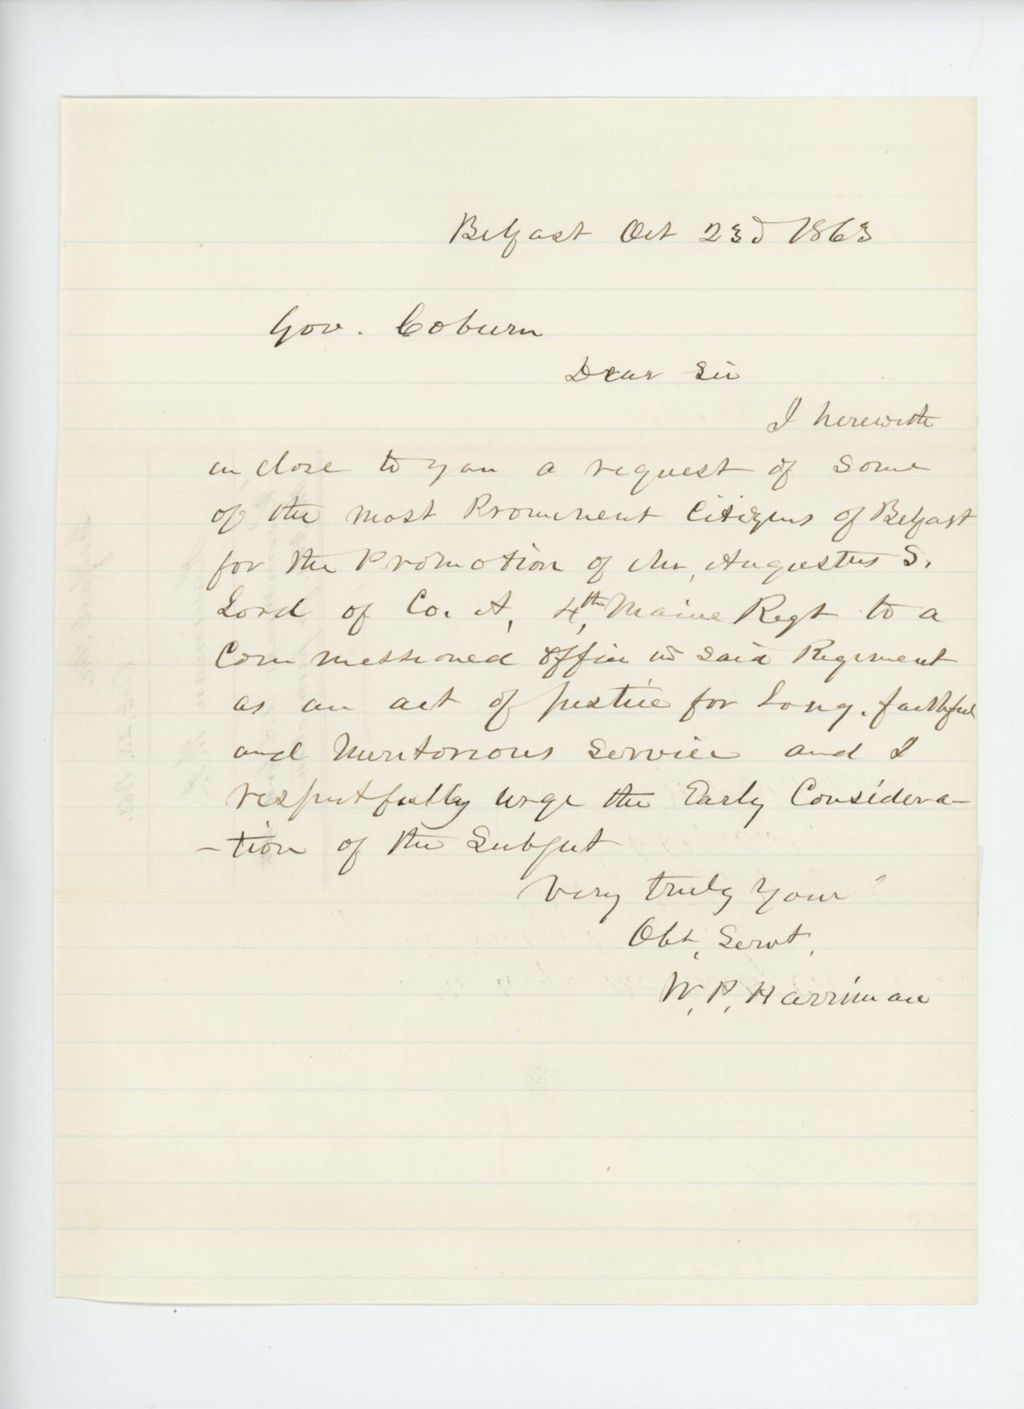 Belfast Oct 23d 1863
Gov. Coburn
Dear Sir
I herewith
inclose to you a request of Some
of the most Prominent Citizens of Belfast
for the Promotion of Mr, Augustus S.
Lord of Co. A, 4th, Maine Regt to a
Commissioned office in said Regiment
as an act of justice for Long, faithful
and Meritorious Service and I
respectfully urge the Early Considera-
-tion of the Subject
Very truly Your
Obt, Servt,
W, P, Harriman